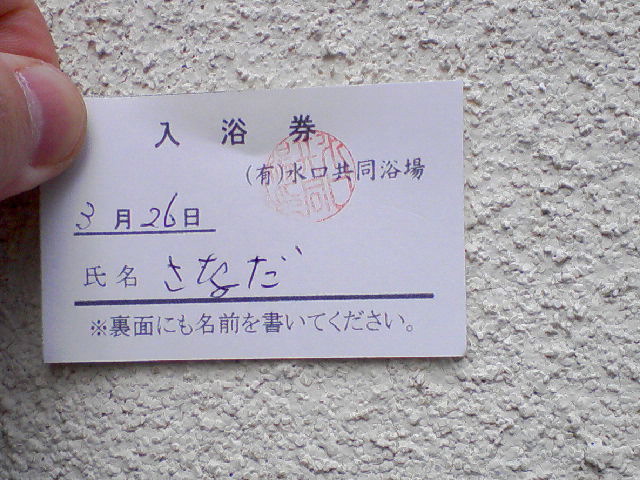 入浴券
(有)水口共同浴場
3月26日
氏名 さなだ
※裏面にも名前を書いてください。